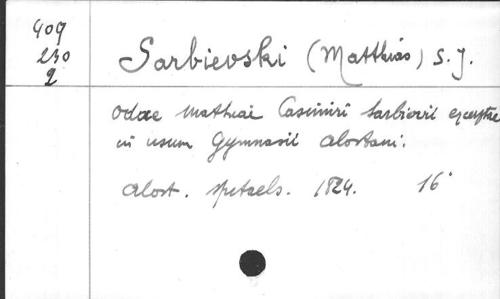 409
230
2
Sarbievski (Matthias) S. J.
Odae Mathiae Casimiri Sarbievii excerptae
in usum Gymnasii Alostani.
Alost. Spitaels. 1824. 16°